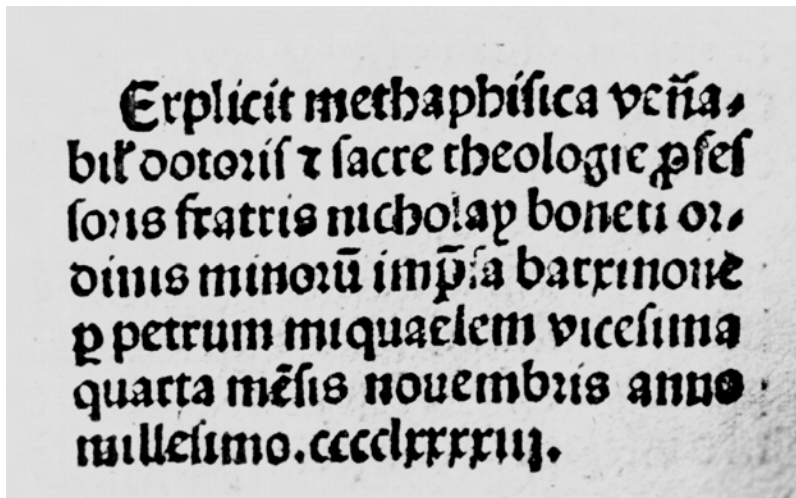 Explicit methaphiſica veña⸗
bilꝭ dotoriſ ⁊ ſacre theologie ꝓfeſ
ſoris fratris nicholay boneti or⸗
dinis minorū imp̄ſa barxinone
ꝑ petrum miquaelem viceſima
quarta mēſis nouembris anno
milleſimo.cccclxxxxiij.